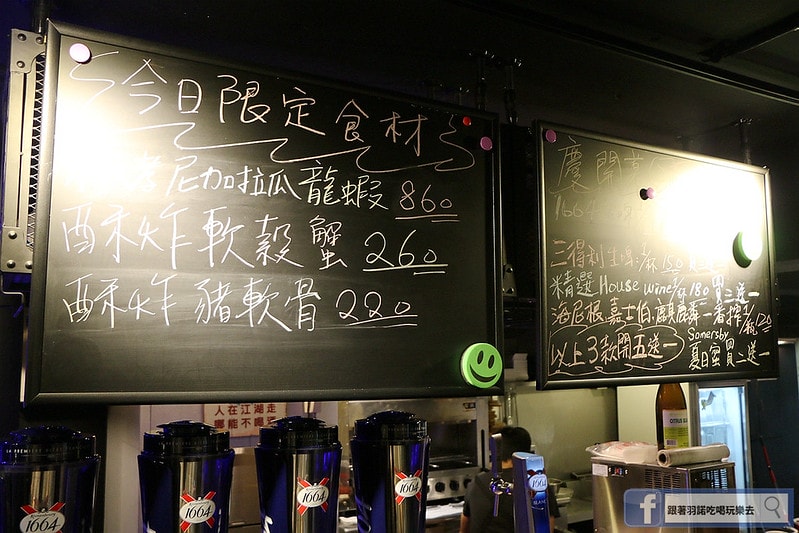 今日限定食材
尼加拉瓜龍蝦 860
酥炸軟殼蟹 260
酥炸豬軟骨 220
慶開幕
1664
三得利生啤1/杯150
精選House wine1/杯180買二送一
海尼根,嘉士伯,麒麟一番搾1/瓶120
以上3款開五送一
Somersby
夏日蜜買二送一
人在江湖走
哪能不喝酒
1664
1664
1664
1664
1664
跟著羽諾吃喝玩樂去